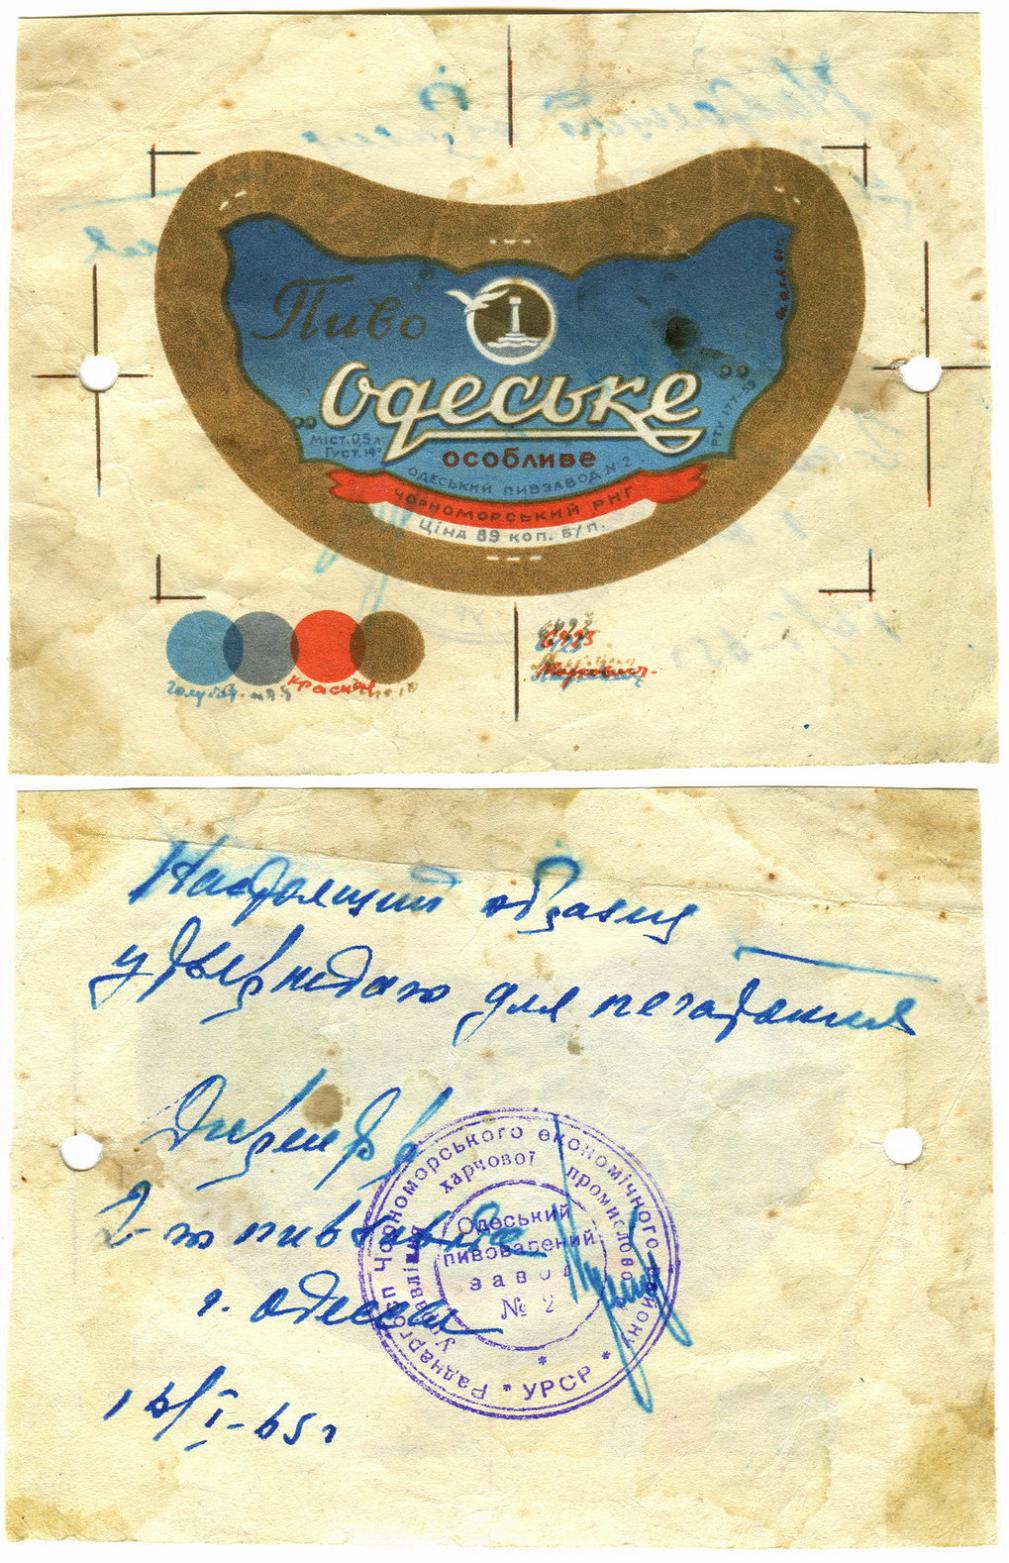 Пиво
Одеське
особливе
Міст. 0,5 л.
Густ. 14°
РТУ 177-59
Одеський пивзавод № 2.
Чорноморський РНГ
Ціна 39 коп. б/п.
6423
голубая
красная
Настоящий образец
утверждаю для печатания
Директор
2-го пивзавода
г. Одессы
16/I-65 г
Раднаргосп Чорноморського економічного району
Управління харчової промислово
* УРСР *
Одеський
пивоварений
завод
№ 2